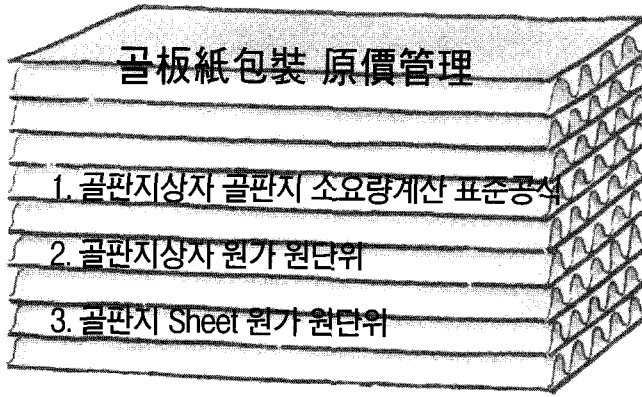 골板紙包裝 原價管理
1. 골판지상자 골판지 소요량계산 표준공식
2. 골판지상자 원가 원단위
3. 골판지 Sheet 원가 원단위